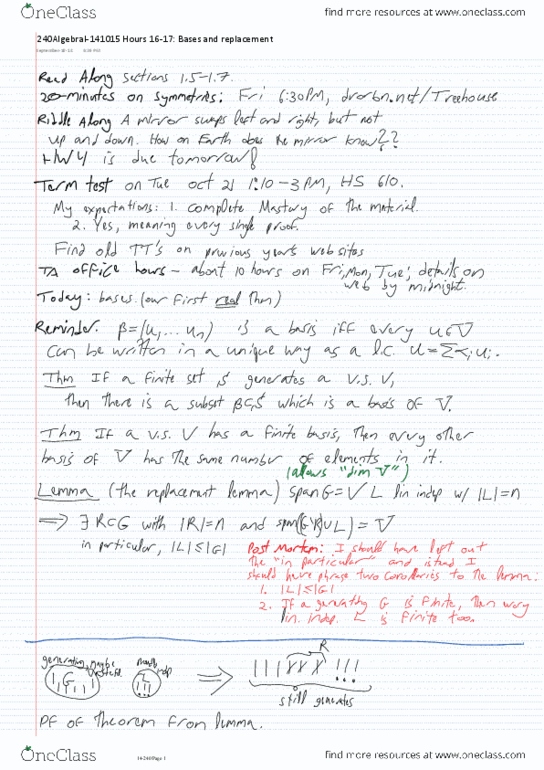 OneClass
find more resources at www.oneclass.com
240AlgebraI-141015 Hours 16-17: Bases and replacement
Read Along sections 1.5-1.7.
20-minutes on symmetries: Fri 6:30PM, drorbn.net/Treehouse
Riddle Along A mirror swaps left and right, but not
up and down. How on Earth does the mirror know??
HW4 is due tomorrow!
Term test on Tue Oct 21 1:10-3PM, HS 610.
My expectations: 1. Complete Mastery of the material.
2. Yes, meaning every single proof.
Find old TT's on previous years web sites
TA office hours - about 10 hours on Fri, Mon, Tue; details on
web by midnight.
Today: bases. (our first real thm)
Reminder. β=(u₁,... uₙ) is a basis iff every u∈V
can be written in a unique way as a l.c. u=∑αᵢuᵢ.
Thm If a finite set S generates a v.s. V,
then there is a subset β⊂S which is a basis of V.
Thm If a v.s. V has a finite basis, then every other
basis of V has the same number of elements in it.
(allows "dim V")
Lemma (the replacement lemma) span G=V L lin indep w/ |L|=n
⇒ ∃R⊂G with |R|=n and span((G\R)∪L)=V
in particular, |L|≤|G|
Post Mortem: I should have left out
the "in particular" and instead I
should have phrase two corollaries to the lemma:
1. |L|≤|G|
2. If a generating G is finite, then every
lin. indep. L is finite too.
generating, maybe
G
L
indep
⇒
R
still generates
PF of theorem from lemma.
OneClass
14-240 Page 1
find more resources at www.oneclass.com